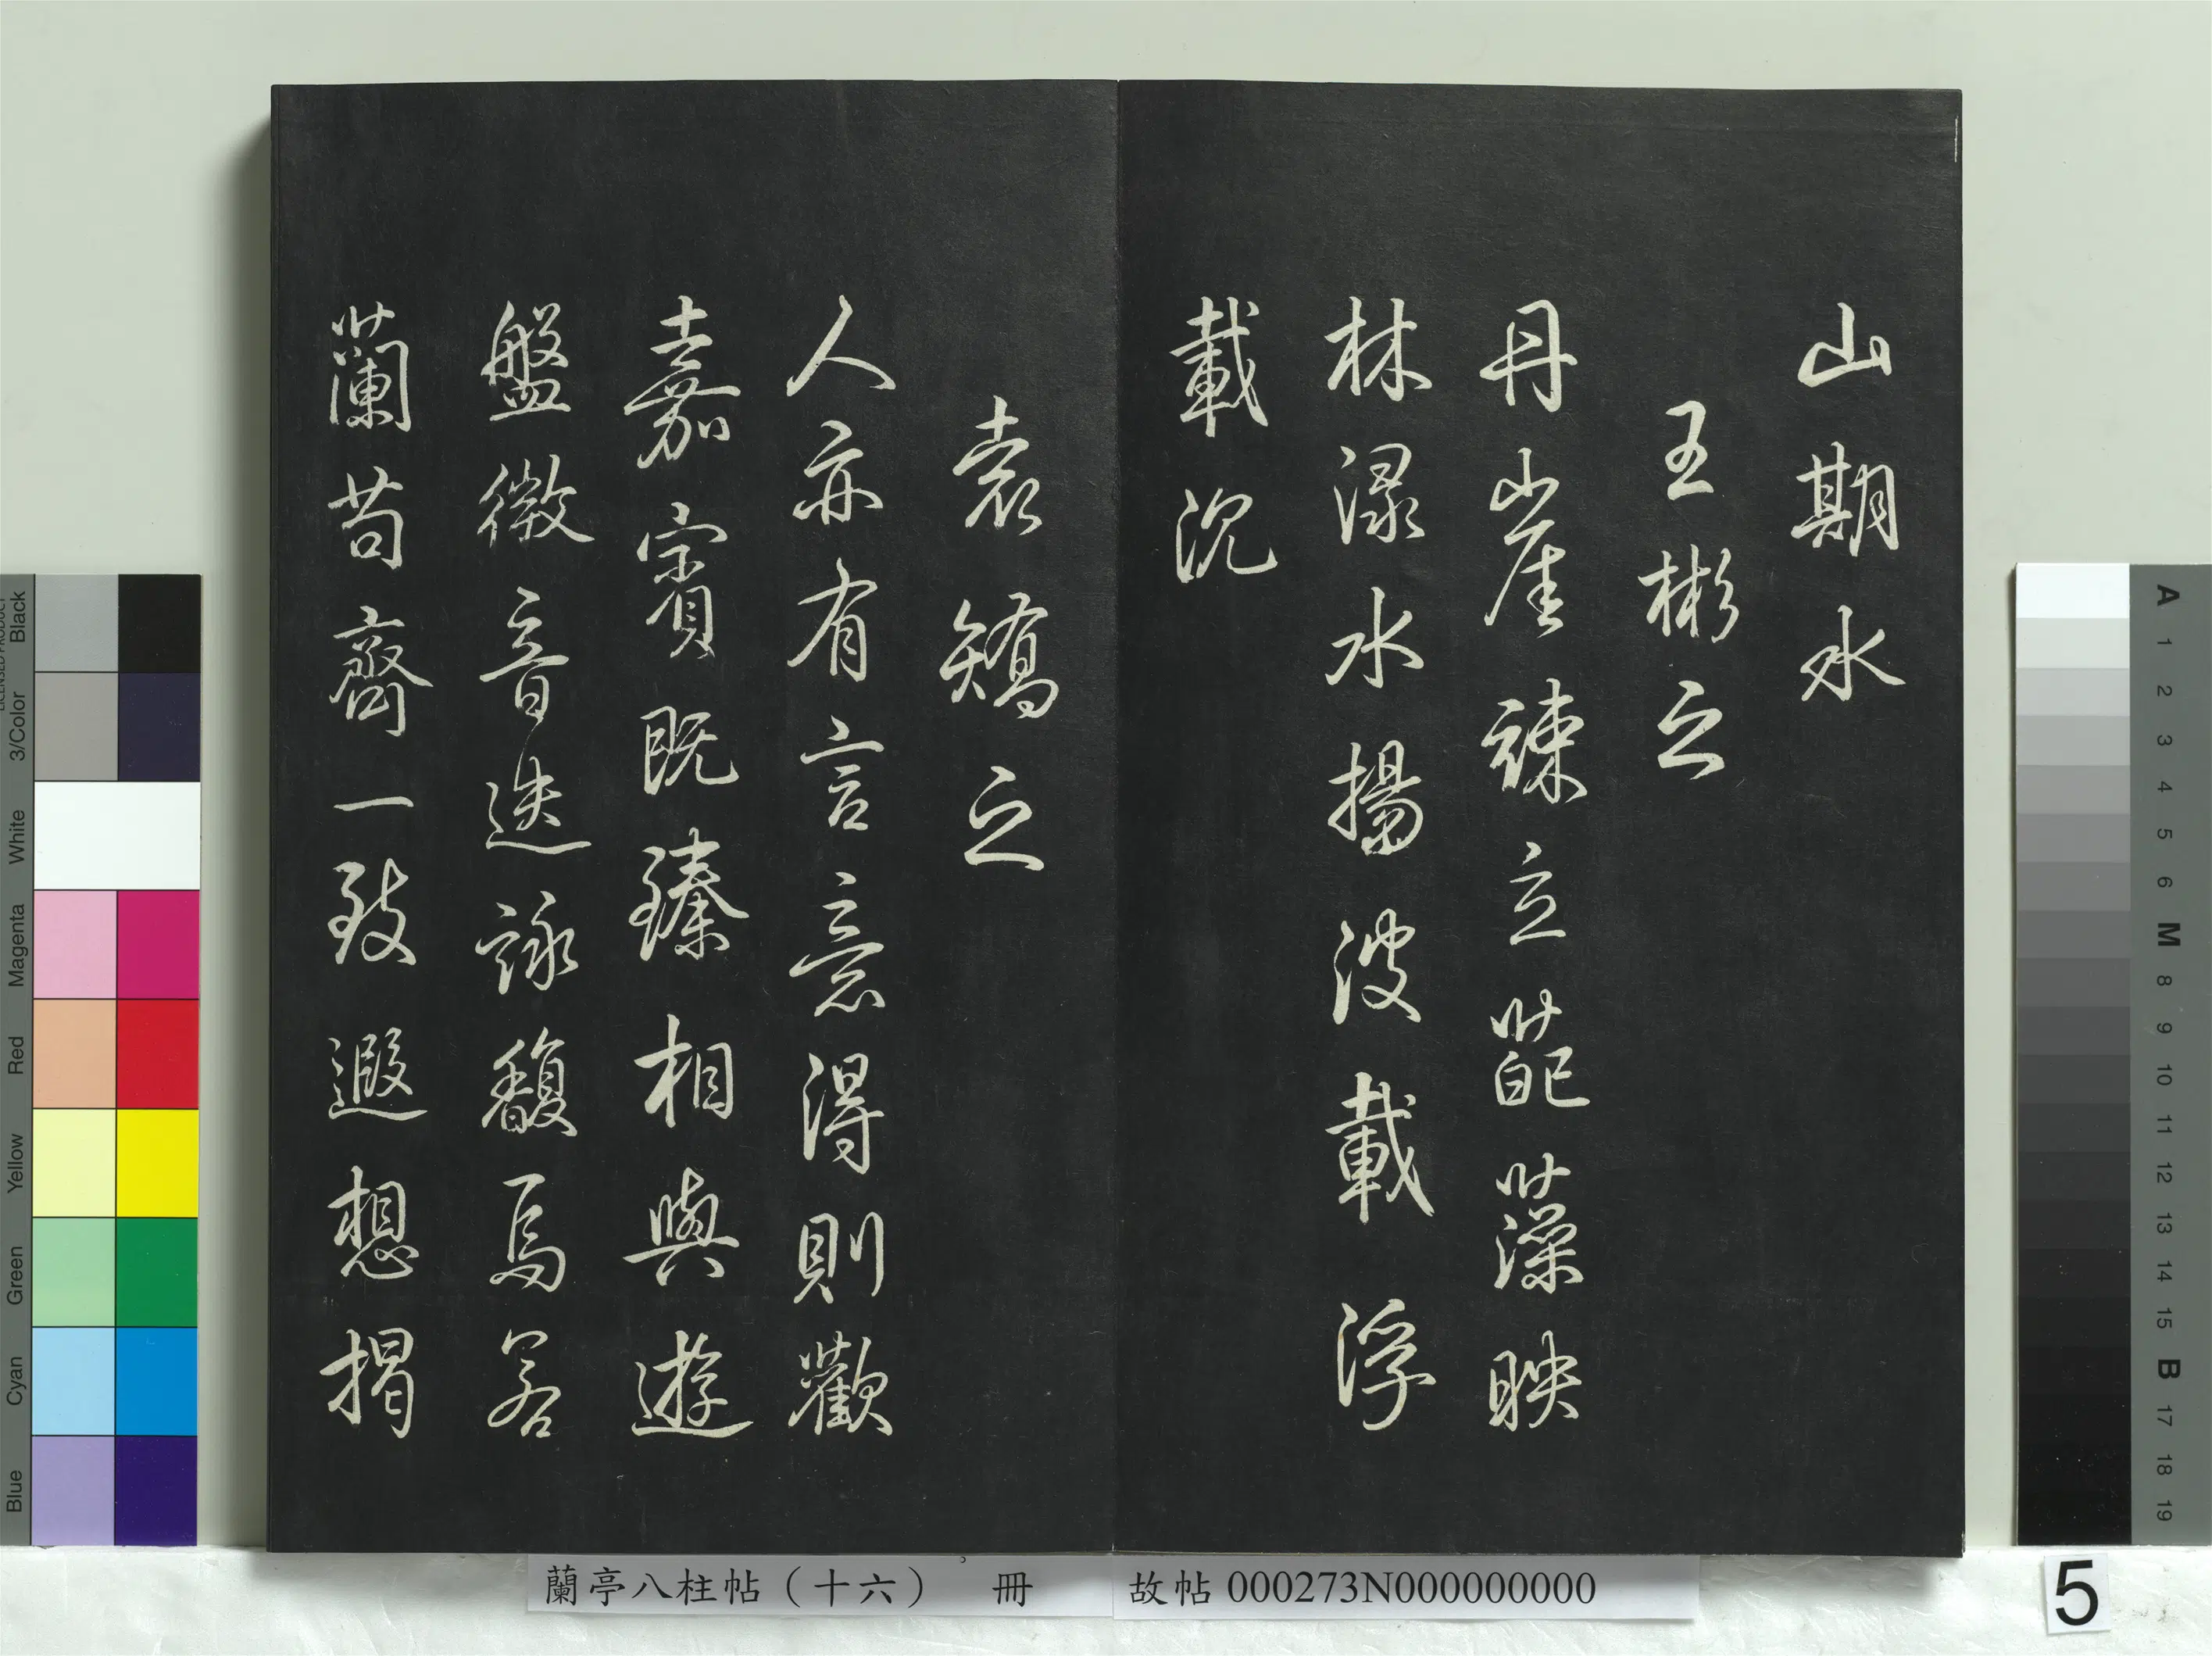 山期水
王彬之
丹崖竦立葩藻映
林渌水揚波載浮
載沉
袁矯之
人亦有言意得則歡
嘉賓既臻相與遊
盤微音迭詠馥焉若
蘭苟齊一致遐想揭
蘭亭八柱帖（十六） 冊
故帖000273N000000000
5
Black
3/Color
White
Magenta
Red
Yellow
Green
Cyan
Blue
A
1
2
3
4
5
6
M
8
9
10
11
12
13
14
15
B
17
18
19